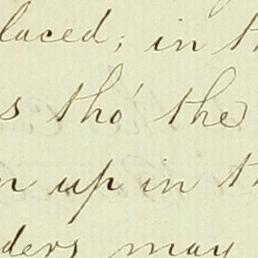 laced; in th
s tho' the
n up in t
ders may